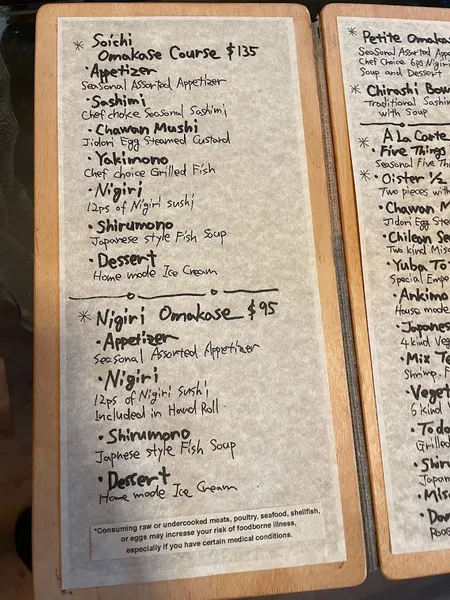 * Soichi
Omakase Course $135
· Appetizer
Seasonal Assorted Appetizer
· Sashimi
Chef choice Seasonal Sashimi
· Chawan Mushi
Jidori Egg Steamed Custard
· Yakimono
Chef choice Grilled Fish
· Nigiri
12ps of Nigiri sushi
· Shirumono
Japanese style Fish Soup
· Dessert
Home made Ice Cream
* Nigiri Omakase $95
· Appetizer
Seasonal Assorted Appetizer
· Nigiri
12ps of Nigiri sushi
Included in Hand Roll
· Shirumono
Japnese style Fish Soup
· Dessert
Home made Ice Cream
*Consuming raw or undercooked meats, poultry, seafood, shellfish,
or eggs may increase your risk of foodborne illness,
especially if you have certain medical conditions.
* Petite Omakas
Seasonal Assorted App
Chef Choice 6ps Nigiri
Soup and Dessert
* Chirashi Bow
Traditional Sashim
with Soup
* A La Carte
· Five Things
Seasonal Five Thi
* · Oister 1/2
Two pieces with
· Chawan M
Jidori Egg Stea
· Chilean Se
Two kind Mis
· Yuba To
Special Empe
· Ankimo
House made
· Japanes
4 kind Veg
· Mix Te
Shrimp. F
· Veget
6 kind V
· Toda
Grilled
· Shiru
Japan
· Miso